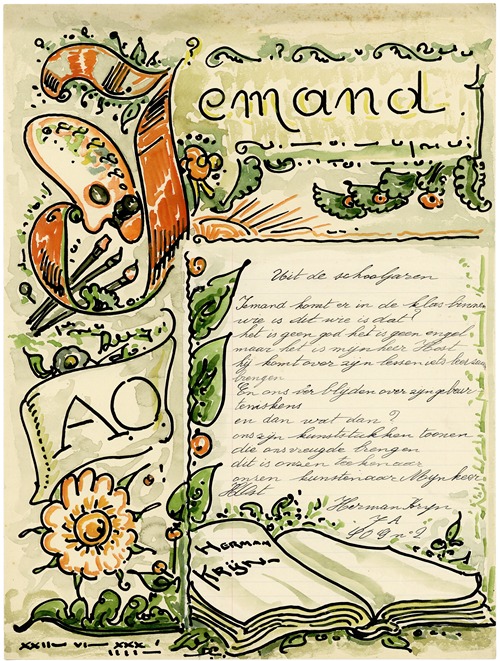 Iemand!
Uit de schooljaren
Iemand komt er in de klas binnen
wie is dit wie is dat?
het is geen god het is geen engel
maar het is mynheer Host
hij komt over zijn lessen iets
brengen
En ons ver blyden over zyn
en dan wat dan?
ons zyn kunststukken toonen
die ons vreugde brengen
dit is onzen teekenaar
onzen kunstenaar Mynheer
Host
Herman Kryn
7 A
AO
HERMAN
KRIJN
XXII VI XXX
IIII